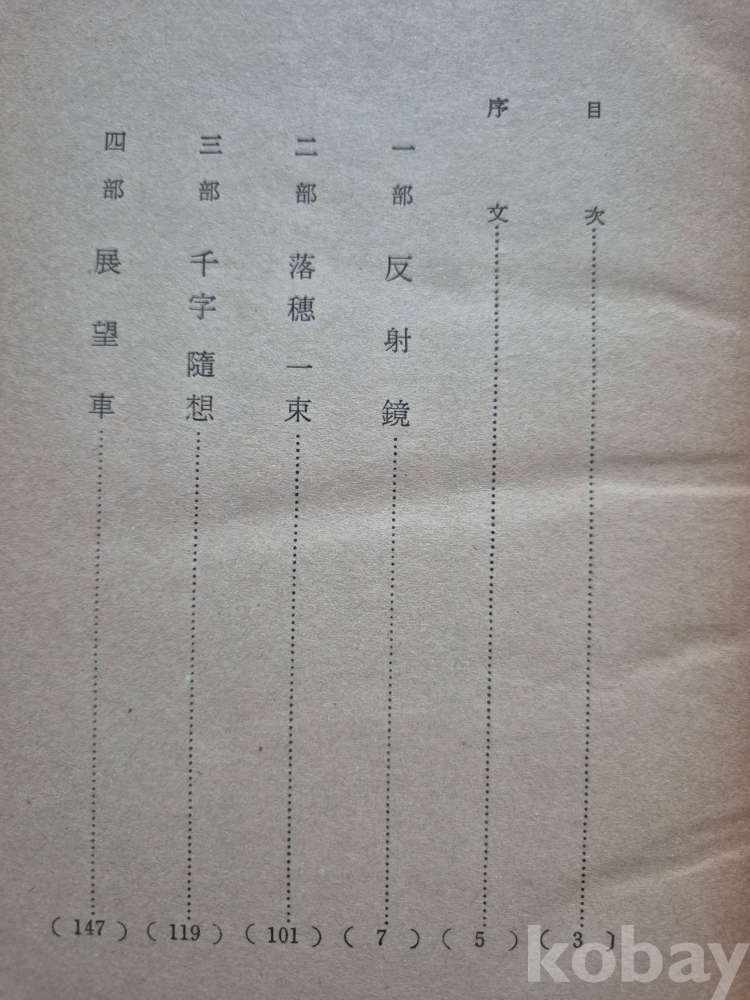 目次………(3)
序文………(5)
一部 反射鏡………(7)
二部 落穗一束………(101)
三部 千字隨想………(119)
四部 展望車………(147)
kobay